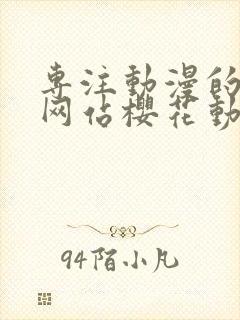 専注動漫的
网佔櫻花動
94陌小凡